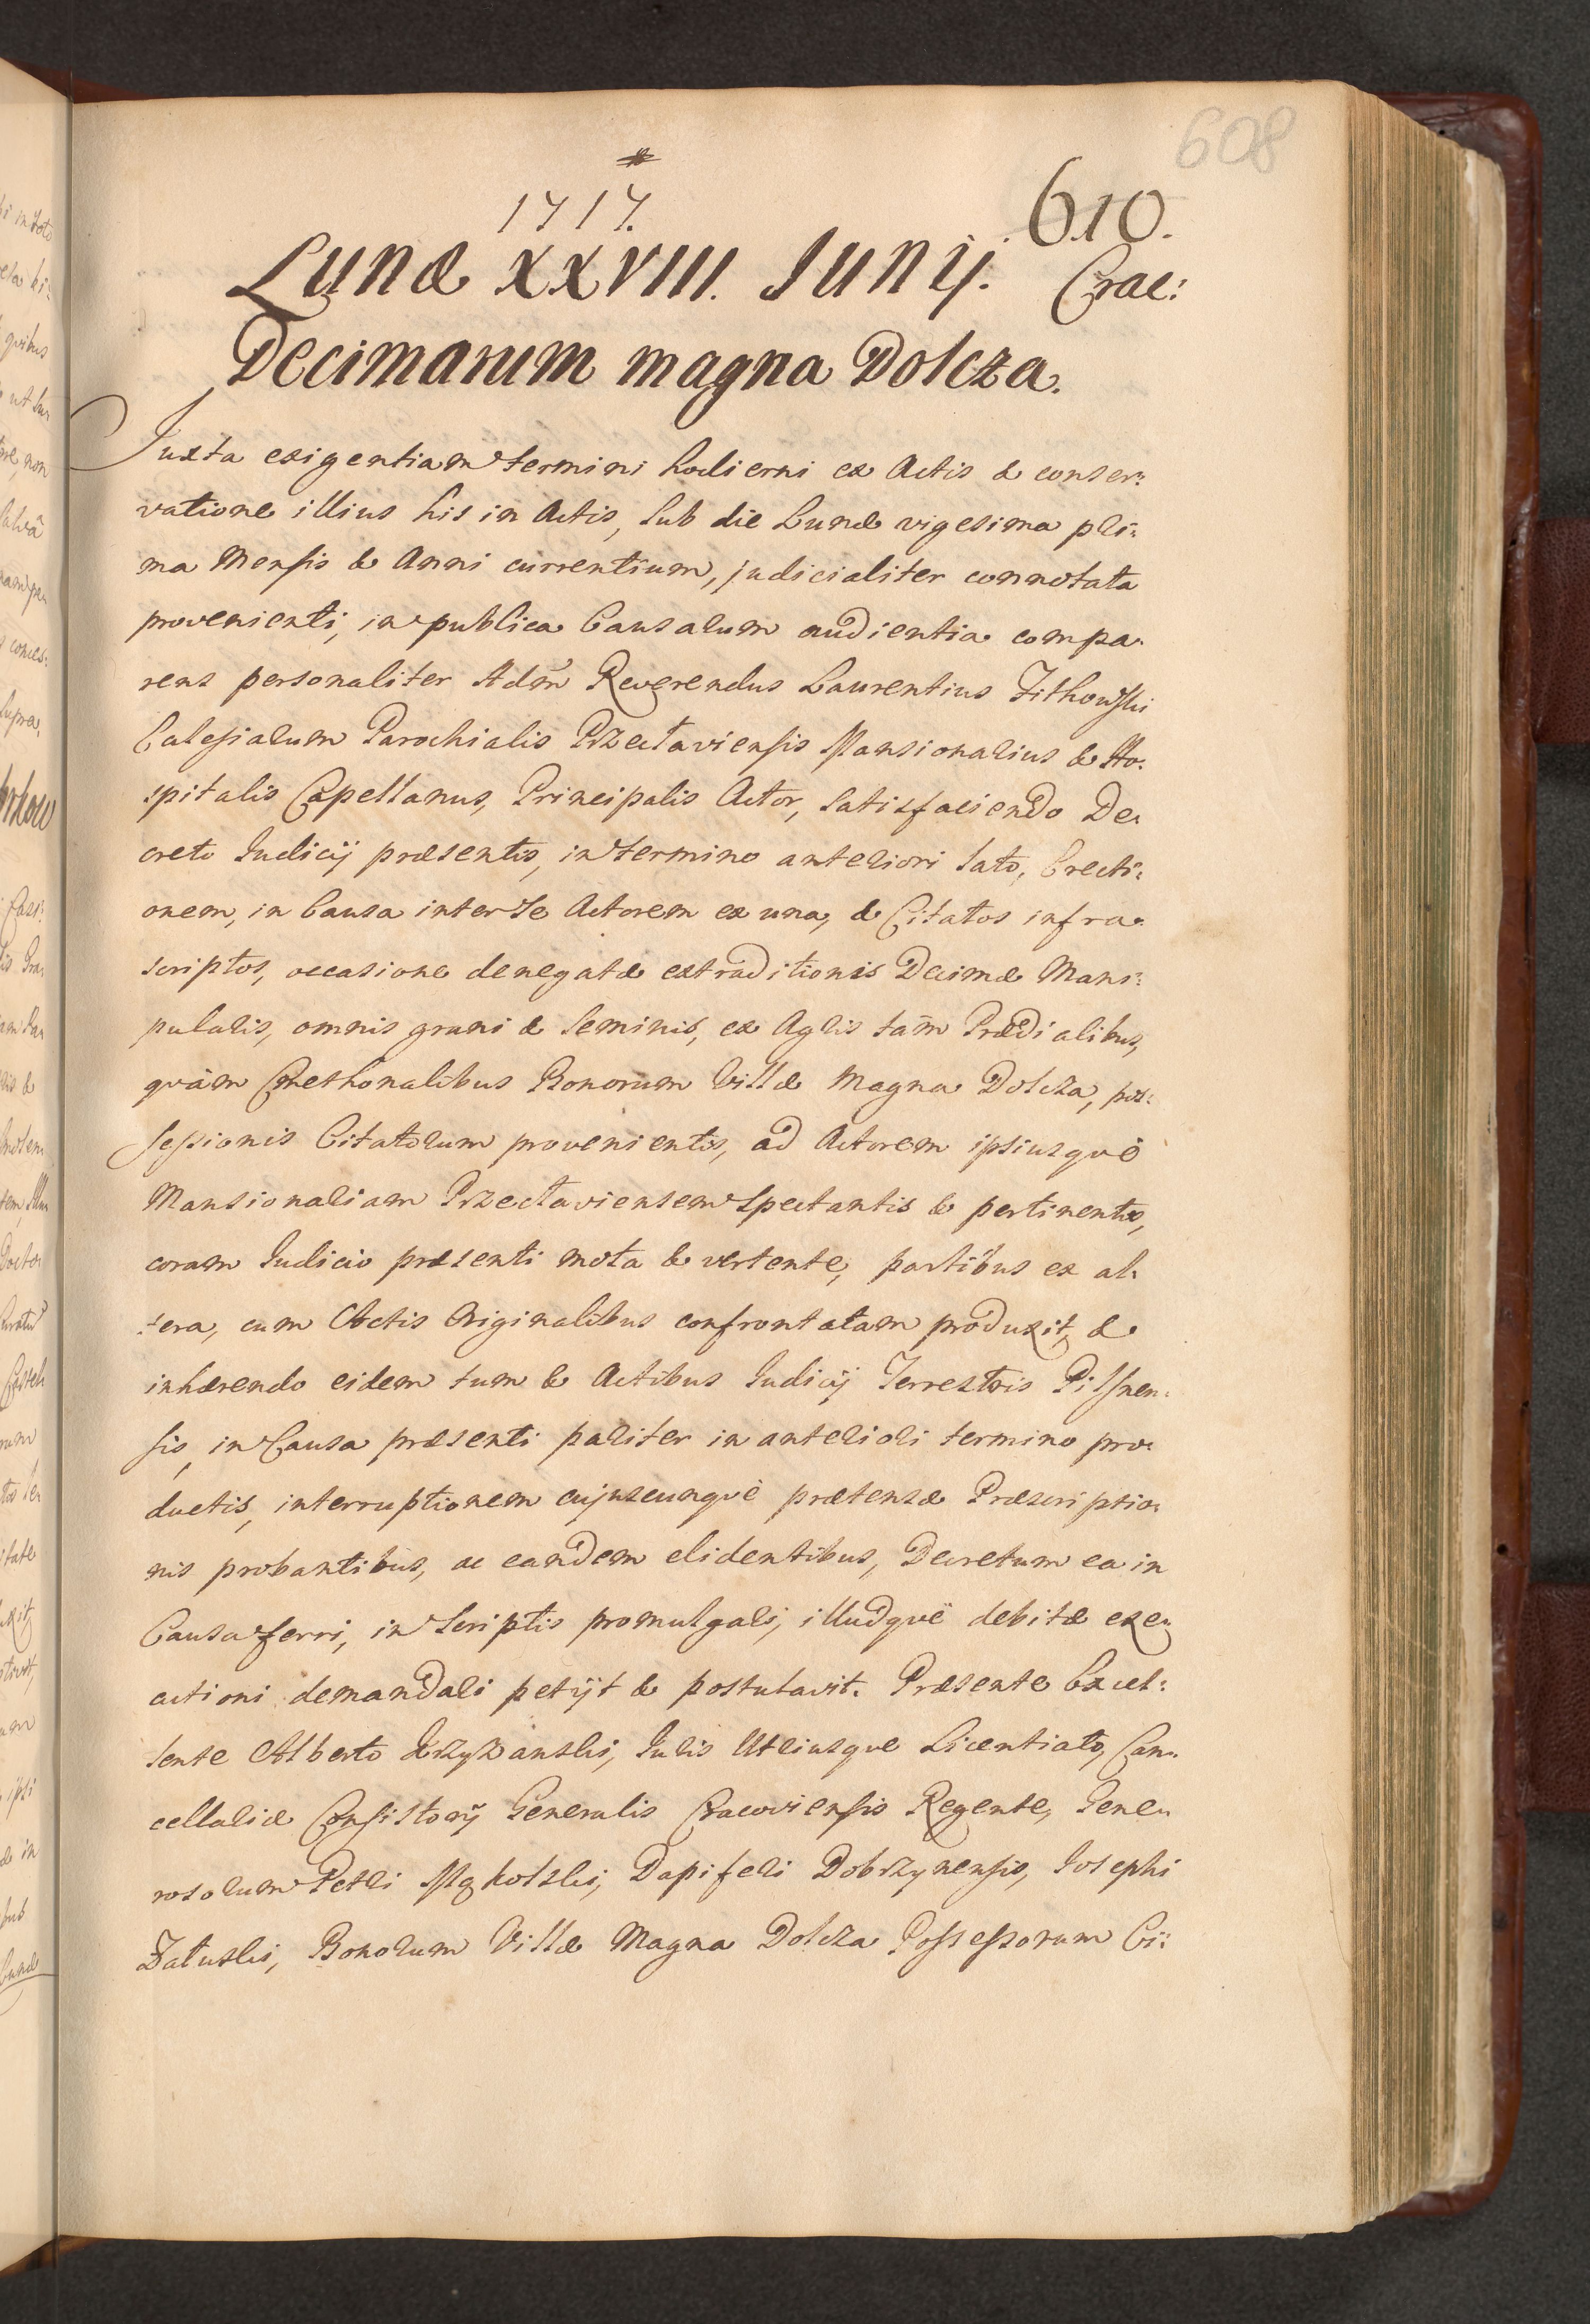 608
1717.
610.
Lunæ XXVIII. Iunij. Crac:
Decimarum magna Dolcza.
Iuxta exigentiam termini hodierni ex Actis & conser:
vatione illius his in Actis, sub die Lunæ vigesima pri:
ma Mensis & Anni currentium, judicialiter connotata
provenienti, in publica Causarum audientia compa:
rens personaliter Adm̃ Reverendus Laurentius Zitkowski
Ecclesiarum Parochialis Przectaviensis Mansionarius & Ho:
spitalis Capellanus, Principalis Actor, satisfaciendo De:
creto Iudicij præsentis, in termino anteriori lato, Erecti:
onem, in Causa inter se Actorem ex una, & Citatos infra:
scriptos, occasione denegatæ extraditionis Decimæ Mani:
pularis, omnis grani & seminis, ex Agris tam Prædialibus,
quàm Cmethonalibus Bonorum Villæ Magna Dolcza, pos:
sessionis Citatorum provenientis, ad Actorem ipsiusquè
Mansionariam Przectaviensem spectantis & pertinentis,
coram Iudicio præsenti mota & vertente, partibus ex al:
tera, cum Actis Originalibus confrontatam produxit, &
inhærendo eidem tum & Actibus Iudicij Terrestris Pilsnen:
sis, in Causa præsenti pariter in anteriori termino pro:
ductis, interruptionem cujuscunquè prætensæ Præscriptio:
nis probantibus, ac eandem elidentibus, Decretum ea in
Causa ferri, in scriptis promulgari, illudquè debitæ exe:
cutioni demandari petijt & postulavit. Præsente Excel:
lente Alberto Krzyzanski, Iuris Utriusque Licentiato, Can:
cellariæ Consistorij Generalis Cracoviensis Regente, Gene:
rosorum Petri Mękolski, Dapiferi Dobrzynensis, Iosephi
Zatuski, Bonorum Villæ Magna Dolcza Possessorum Ci: